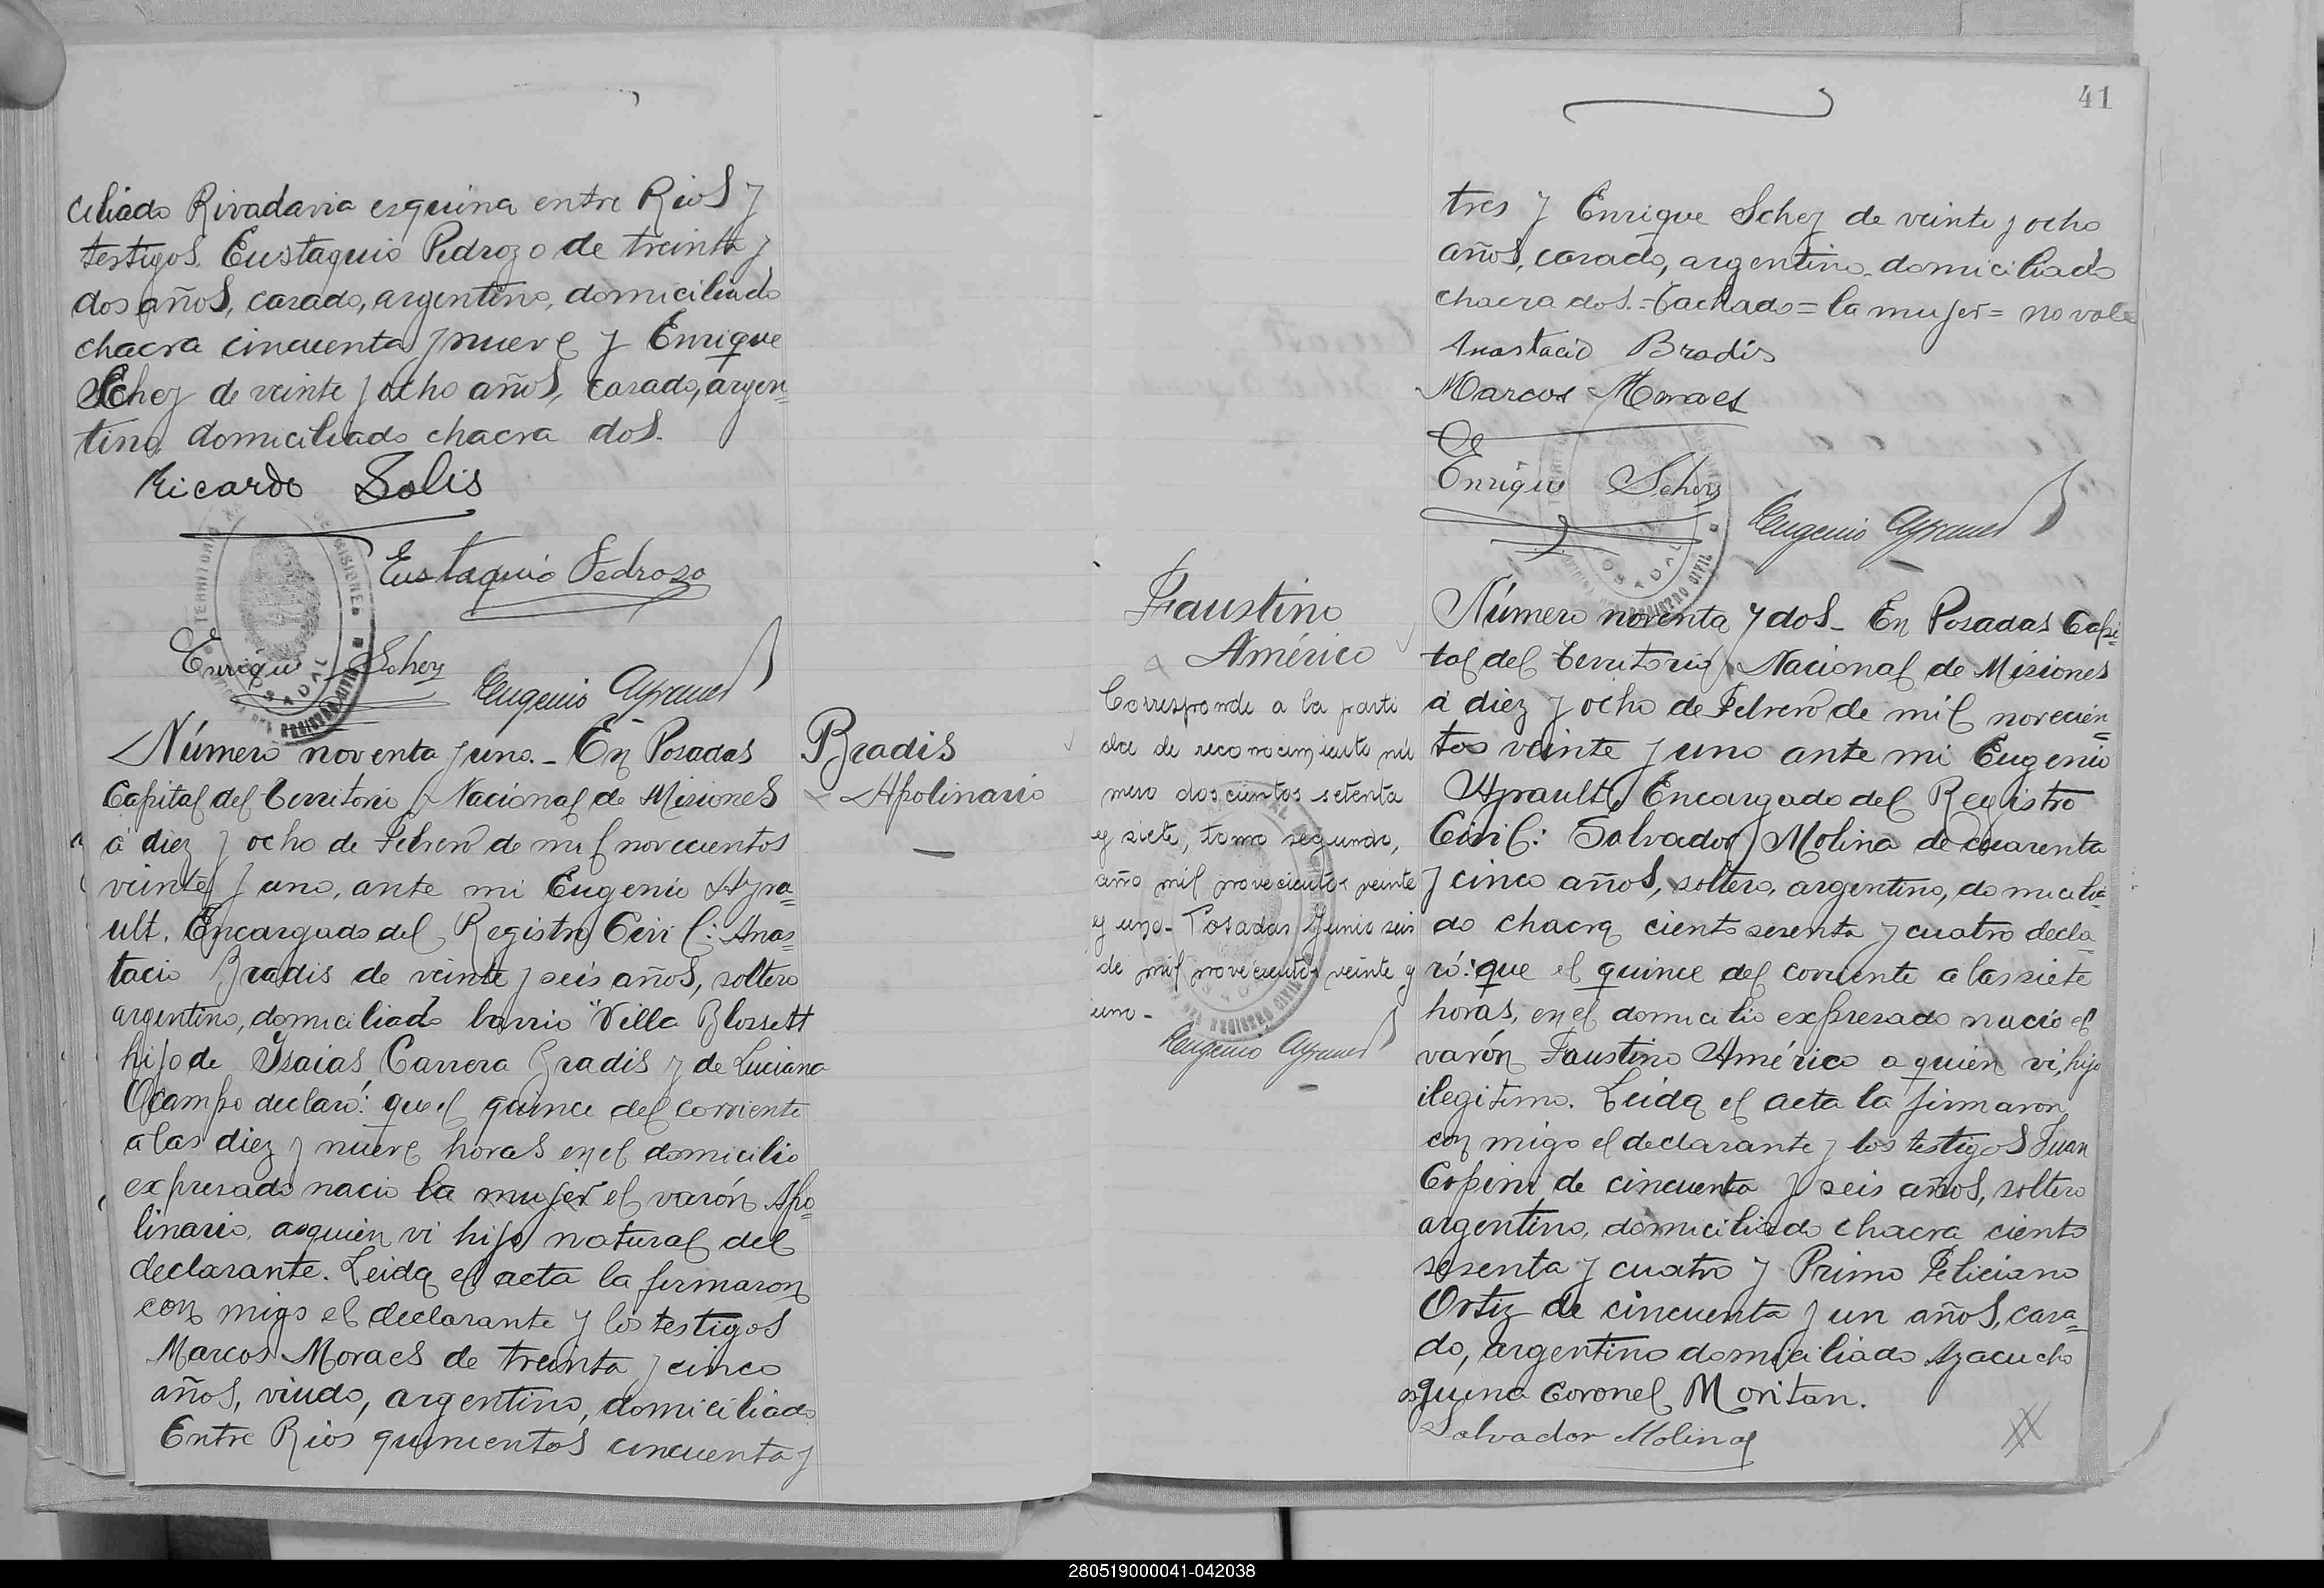 ciliado Rivadavia esquina entre Rios y
testigos Eustaquio Pedrozo de treinta y
dos años, casado, argentino, domiciliado
chacra cincuenta y nueve y Enrique
Schez de veinte y ocho años, casado, argen=
tino, domiciliado chacra dos.
Ricardo Solis
Eustaquio Pedrozo
Enrique Schez
Eugenio Ayrault
Número noventa y uno.- En Posadas
Capital del Territorio Nacional de Misiones
á diez y ocho de Febrero de mil novecientos
veinte y uno, ante mi Eugenio Ayra=
ult, Encargado del Registro Civil: Anas=
tacio Bradis de veinte y seis años, soltero
argentino, domiciliado barrio "Villa Blossett
hijo de Isaias Carrera Bradis y de Luciana
Ocampo declaró: que el quince del corriente
a las diez y nueve horas en el domicilio
expresado nació la mujer el varón Apo=
linario, a quien vi hijo natural del
declarante. Leida el acta la firmaron
con migo el declarante y los testigos
Marcos Moraes de treinta y cinco
años, viudo, argentino, domiciliado
Entre Rios quinientos cincuenta y
Bradis
Apolinario
41
tres y Enrique Schez de veinte y ocho
años, casado, argentino, domiciliado
chacra dos.=Tachado=la mujer=no vale
Anastacio Bradis
Marcos Moraes
Enrique Schez
Eugenio Ayrault
Faustino
Américo
Corresponde a la parti
da de reconocimiento nú
mero doscientos setenta
y siete, tomo segundo,
año mil novecientos veinte
y uno- Posadas Junio seis
de mil novecientos veinte y
uno-
Eugenio Ayrault
Número noventa y dos- En Posadas Capi=
tal del Territorio Nacional de Misiones
á diez y ocho de Febrero de mil novecien=
tos veinte y uno ante mi Eugenio
Ayrault, Encargado del Registro
Civil: Salvador Molina de cuarenta
y cinco años, soltero, argentino, domicilia=
do chacra ciento sesenta y cuatro decla
ró: que el quince del corriente a las siete
horas, en el domicilio expresado nació el
varón Faustino Américo a quien vi, hijo
ilegitimo. Leida el acta la firmaron
con migo el declarante y los testigos Juan
Espini de cincuenta y seis años, soltero
argentino, domiciliado chacra ciento
sesenta y cuatro y Primo Feliciano
Ortiz de cincuenta y un años, casa=
do, argentino domiciliado Ayacucho
esquina Coronel Moritan.
Salvador Molina
280519000041-042038